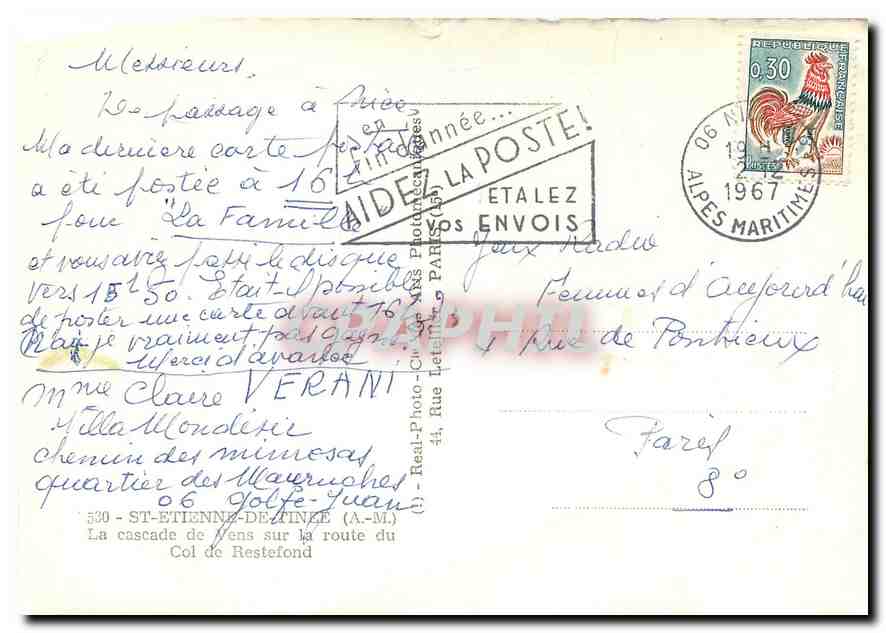 Messieurs.
De passage à Nice
Ma dernière carte postale
a été postée à 16 h
pour "La Famille"
et vous aviez passé le disque
vers 15h50. Était-il possible
de poster une carte avant 16h
N'ai je vraiment pas gagné ?
Merci d'avance
Mme Claire VERANI
Villa Mondésir
chemin des mimosas
quartier des
06 Golfe-Juan
530 - ST-ETIENNE-DE-TINEE (A.-M.)
La cascade de Vens sur la route du
Col de Restefond
- Real-Photo - Arts Photomécaniques
44, Rue Letellier - PARIS (15e)
en
fin d'année...
AIDEZ LA POSTE!
ETALEZ
VOS ENVOIS
REPUBLIQUE FRANÇAISE
0,30
POSTES
06 NI
19 H
2-12
1967
ALPES MARITIMES
Jeux Radio
Femmes d'Aujourd'hui
Rue de Ponthieux
Paris
8°
PAPHIL